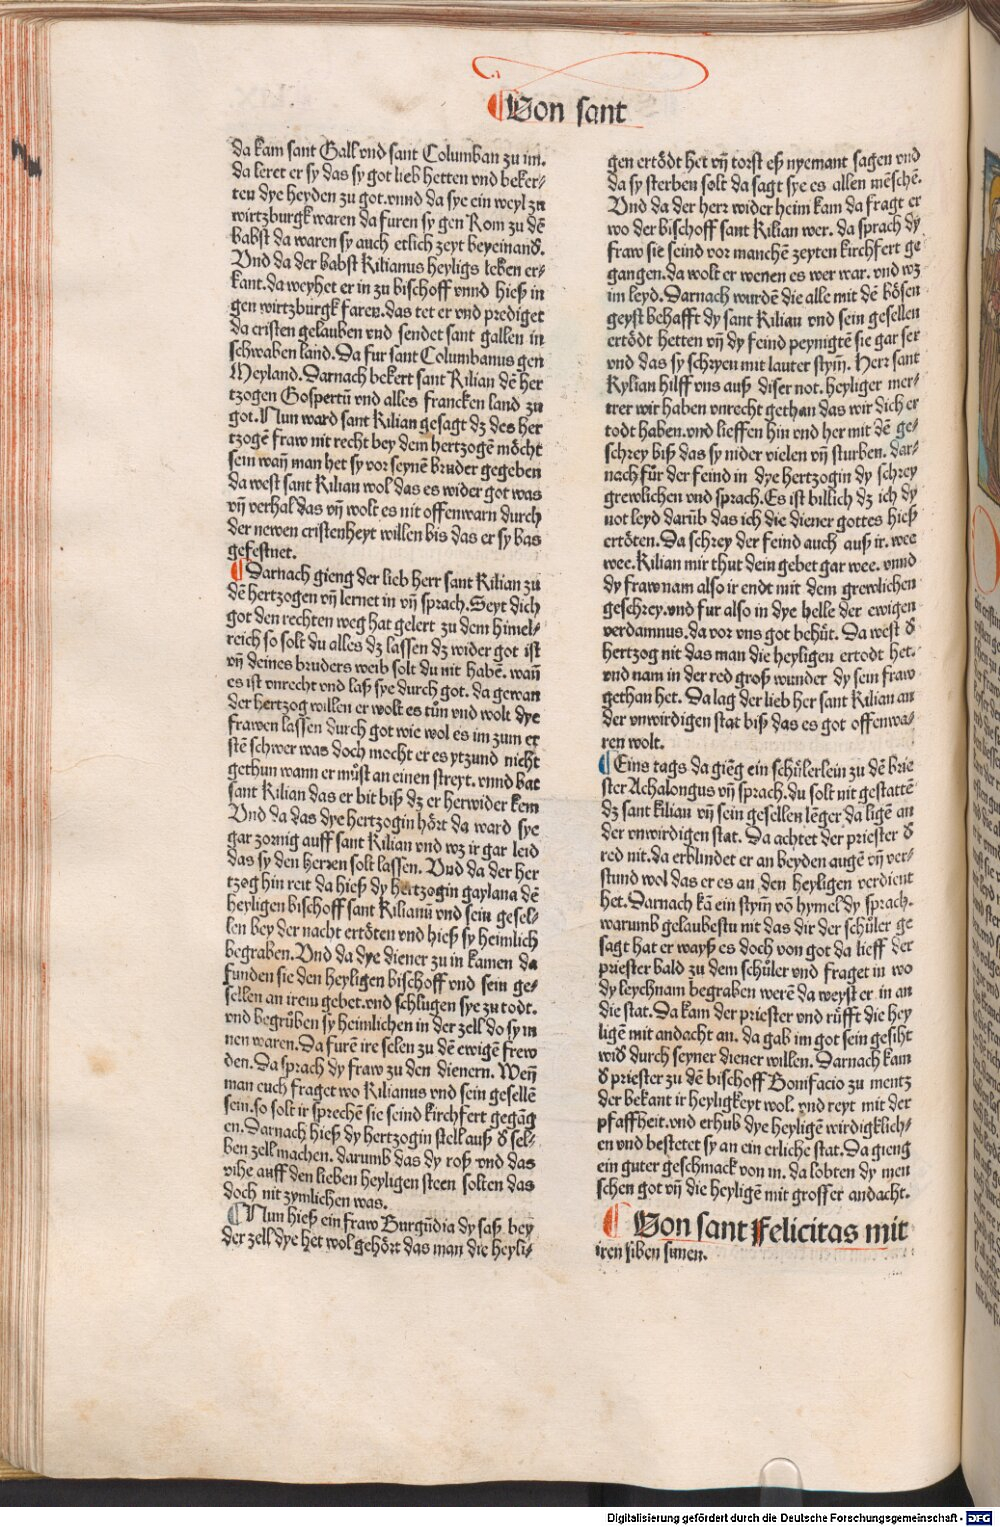 Von sant
da kam sant Gall vnd sant Columban zu im.
da leret er sy das sy got lieb hetten vnd beker⸗
ten dye heyden zu got. vnnd da sye ein weyl zu
wirtzburgk waren da furen sy gen Rom zu dē
babst da waren sy auch etlich zeyt beyeinanđ.
Vnd da der babst Kilianus heyligs leben er⸗
kant. da weyhet er in zu bischoff vnnd hieß in
gen wirtzburgk faren. das tet er vnd prediget
da cristen gelauben vnd sendet sant gallen in
schwaben land. Da fur sant Columbanus gen
Meyland. Darnach bekert sant Kilian dē her
tzogen Gospertū vnd alles francken land zu
got. Nun ward sant Kilian gesagt dz des her
tzogē fraw nit recht bey dem hertzogē möcht
sein wañ man het sy vor seynē bruder gegeben
da west sant Kilian wol das es wider got was
vñ verhal das vñ wolt es nit offenwarn durch
der newen cristenheyt willen bis das er sy bas
gefestnet.
Darnach gieng der lieb herr sant Kilian zu
dē hertzogen vñ lernet in vñ sprach. Seyt dich
got den rechten weg hat gelert zu dem himel⸗
reich so solt du alles dz lassen dz wider got ist
vñ deines bruders weib solt du nit habē. wañ
es ist vnrecht vnd laß sye durch got. da gewan
der hertzog willen er wolt es tůn vnd wolt dye
frawen lassen durch got wie wol es im zum er
stē schwer was doch mocht er es ytzund nicht
gethun wann er můst an einen streyt. vnnd bat
sant Kilian das er bit biß dz er herwider kem
Vnd da das dye hertzogin hört da ward sye
gar zornig auff sant Kilian vnd wz ir gar leid
das sy den herren solt lassen. Vnd da der her
tzog hin reit da hieß dy hertzogin gaylana dē
heyligen bischoff sant Kilianū vnd sein gesel⸗
len bey der nacht ertöten vnd hieß sy heimlich
begraben. Vnd da dye diener zu in kamen da
funden sie den heyligen bischoff vnd sein ge⸗
sellen an irem gebet. vnd schlugen sye zu todt.
vnd begrůben sy heimlichen in der zell do sy in
nen waren. Da furē ire selen zu dē ewigē frew
den. Da sprach dy fraw zu den dienern. Weñ
man euch fraget wo Kilianus vnd sein gesellē
sein. so solt ir sprechē sie seind kirchfert gegāg
en. Darnach hieß dy hertzogin stell auß đ sel⸗
ben zell machen. darumb das dy roß vnd das
vihe auff den lieben heyligen steen solten das
doch nit zymlichen was.
Nun hieß ein fraw Burgūdia dy saß bey
der zell dye het wol gehört das man die heyli⸗
gen ertödt het vñ torst eß nyemant sagen vnd
da sy sterben solt da sagt sye es allen mēschē.
Vnd da der herr wider heim kam da fragt er
wo der bischoff sant Kilian wer. da sprach dy
fraw sie seind vor manchē zeyten kirchfert ge
gangen. da wolt er wenen es wer war. vnd wz
im leyd. Darnach wurdē die alle mit dē bösen
geyst behafft dy sant Kilian vnd sein gesellen
ertödt hetten vñ dy feind peynigtē sie gar ser
vnd das sy schryen mit lauter stym̄. Herr sant
Kylian hilff vns auß diser not. heyliger mer⸗
trer wir haben vnrecht gethan das wir dich er
todt haben. vnd lieffen hin vnd her mit dē ge⸗
schrey biß das sy nider vielen vñ sturben. dar⸗
nach fůr der feind in dye hertzogin dy schrey
grewlichen vnd sprach. Es ist billich dz ich dy
not leyd darūb das ich die diener gottes hieß
ertöten. Da schrey der feind auch auß ir. wee
wee. Kilian mir thut dein gebet gar wee. vnnd
dy fraw nam also ir endt mit dem grewlichen
geschrey. vnd fur also in dye helle der ewigen
verdamnus. da vor vns got behůt. Da west đ
hertzog nit das man die heyligen ertodt het.
vnd nam in der red groß wunder dy sein fraw
gethan het. Da lag der lieb her sant Kilian an
der vnwirdigen stat biß das es got offenwa⸗
ren wolt.
Eins tags da giēg ein schůlerlein zu dē brie
ster Achalongus vñ sprach. du solt nit gestattē
dz sant kilian vñ sein gesellen lēger da ligen an
der vnwirdigen stat. Da achtet der priester đ
red nit. da erblindet er an beyden augē vñ ver⸗
stund wol das er es an den heyligen verdient
het. Darnach kā ein stym̄ vō hymel dy sprach.
warumb gelaubestu nit das dir der schůler ge
sagt hat er wayß es doch von got da lieff der
priester bald zu dem schůler vnd fraget in wo
dy leychnam begraben werē da weyst er in an
die stat. Da kam der priester vnd růfft die hey
ligē mit andacht an. da gab im got sein gesiht
wiđ durch seyner diener willen. Darnach kam
đ priester zu dē bischoff Bonifacio zu mentz
der bekant ir heyligkeyt wol. vnd reyt mit der
pfaffheit. vnd erhub dye heyligē wirdigklich⸗
en vnd bestetet sy an ein erliche stat. Da gieng
ein guter geschmack von in. da lobten dy men
schen got vñ die heyligē mit grosser andacht.
Von sant Felicitas mit
iren siben sunen.
Digitalisierung gefördert durch die Deutsche Forschungsgemeinschaft - DFG